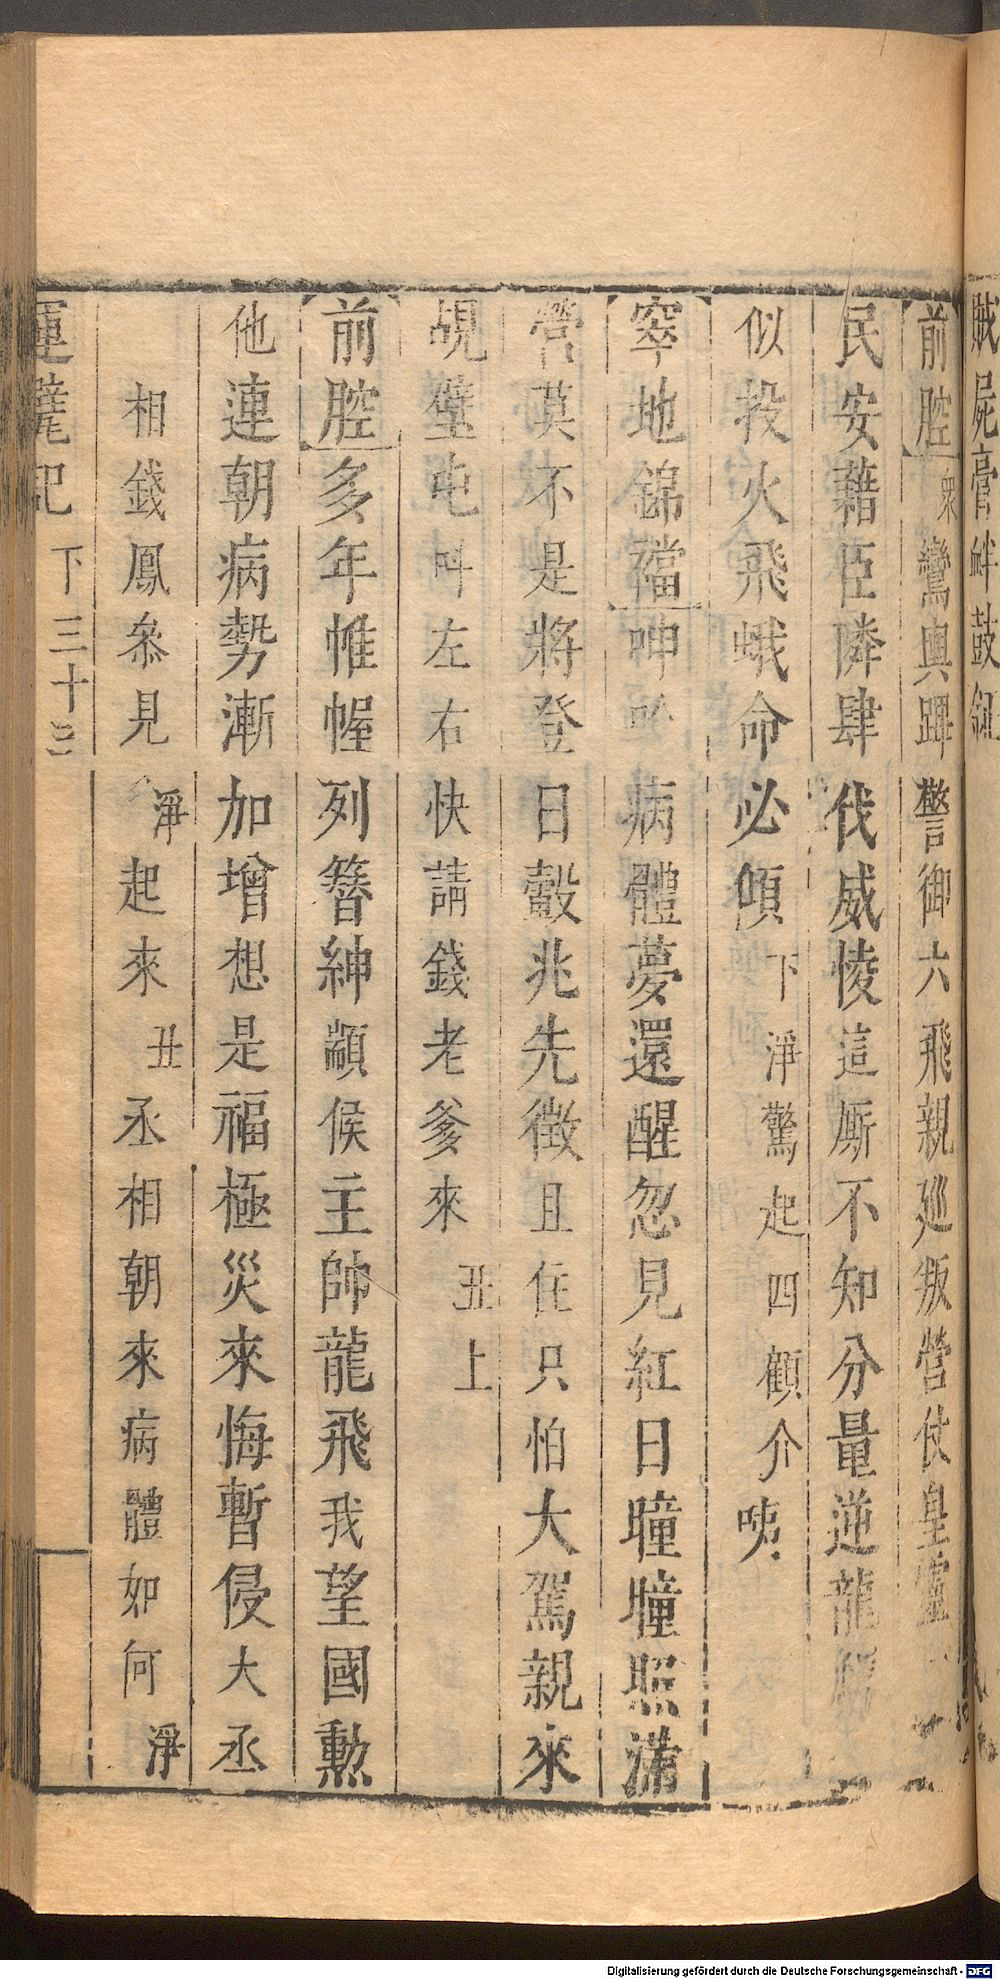 賊屍膏衅鼓
前腔 衆 鸞輿蹕警御六飛親廵叛營仗皇靈
民安藉臣隣肆伐威悛這厮不知分量逆龍
似投火飛蛾命必傾 下 淨驚起四顧介 咦
窣地錦襠 呻吟病體夢還醒忽見紅日曈曈照滿
營莫不是將登日轂兆先徵且住只怕大駕親來
覘壁屯叫左右快請錢老爹來 丑上
前腔 多年帷幄列簪紳顓候主帥龍飛我望國勲
他連朝病勢漸加增想是福極災來悔暫侵大丞
相錢鳳叅見 淨 起來 丑 丞相朝來病體如何 淨
運甓記 下 三十三
Digitalisierung gefördert durch die Deutsche Forschungsgemeinschaft - DFG